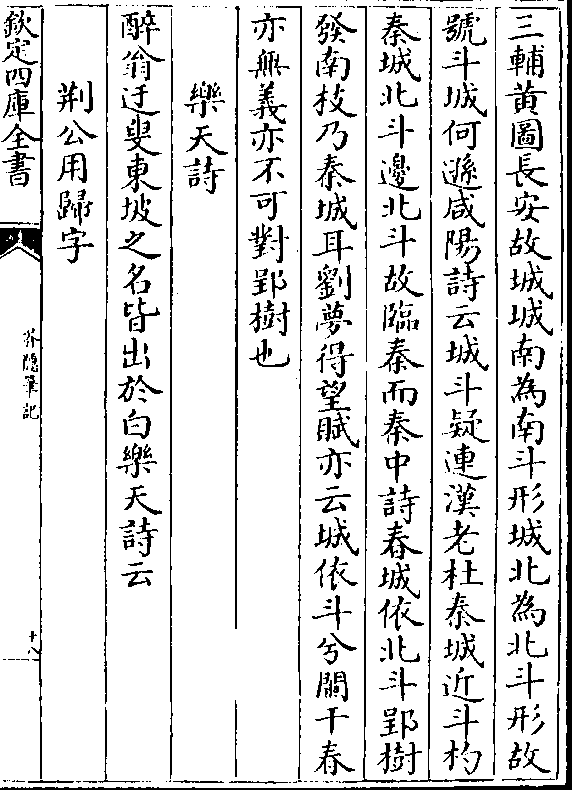 三輔黄圖長安故城城南為南斗形城北為北斗形故
號斗城何遜咸陽詩云城斗疑連漢老杜秦城近斗杓
秦城北斗邊北斗故臨秦而秦中詩春城依北斗郢樹
發南枝乃秦城耳劉夢得望賦亦云城依斗兮闌干春
亦無義亦不可對郢樹也
樂天詩
醉翁迂叟東坡之名皆出於白樂天詩云
荆公用歸字
欽定四庫全書
芥隱筆記
十八